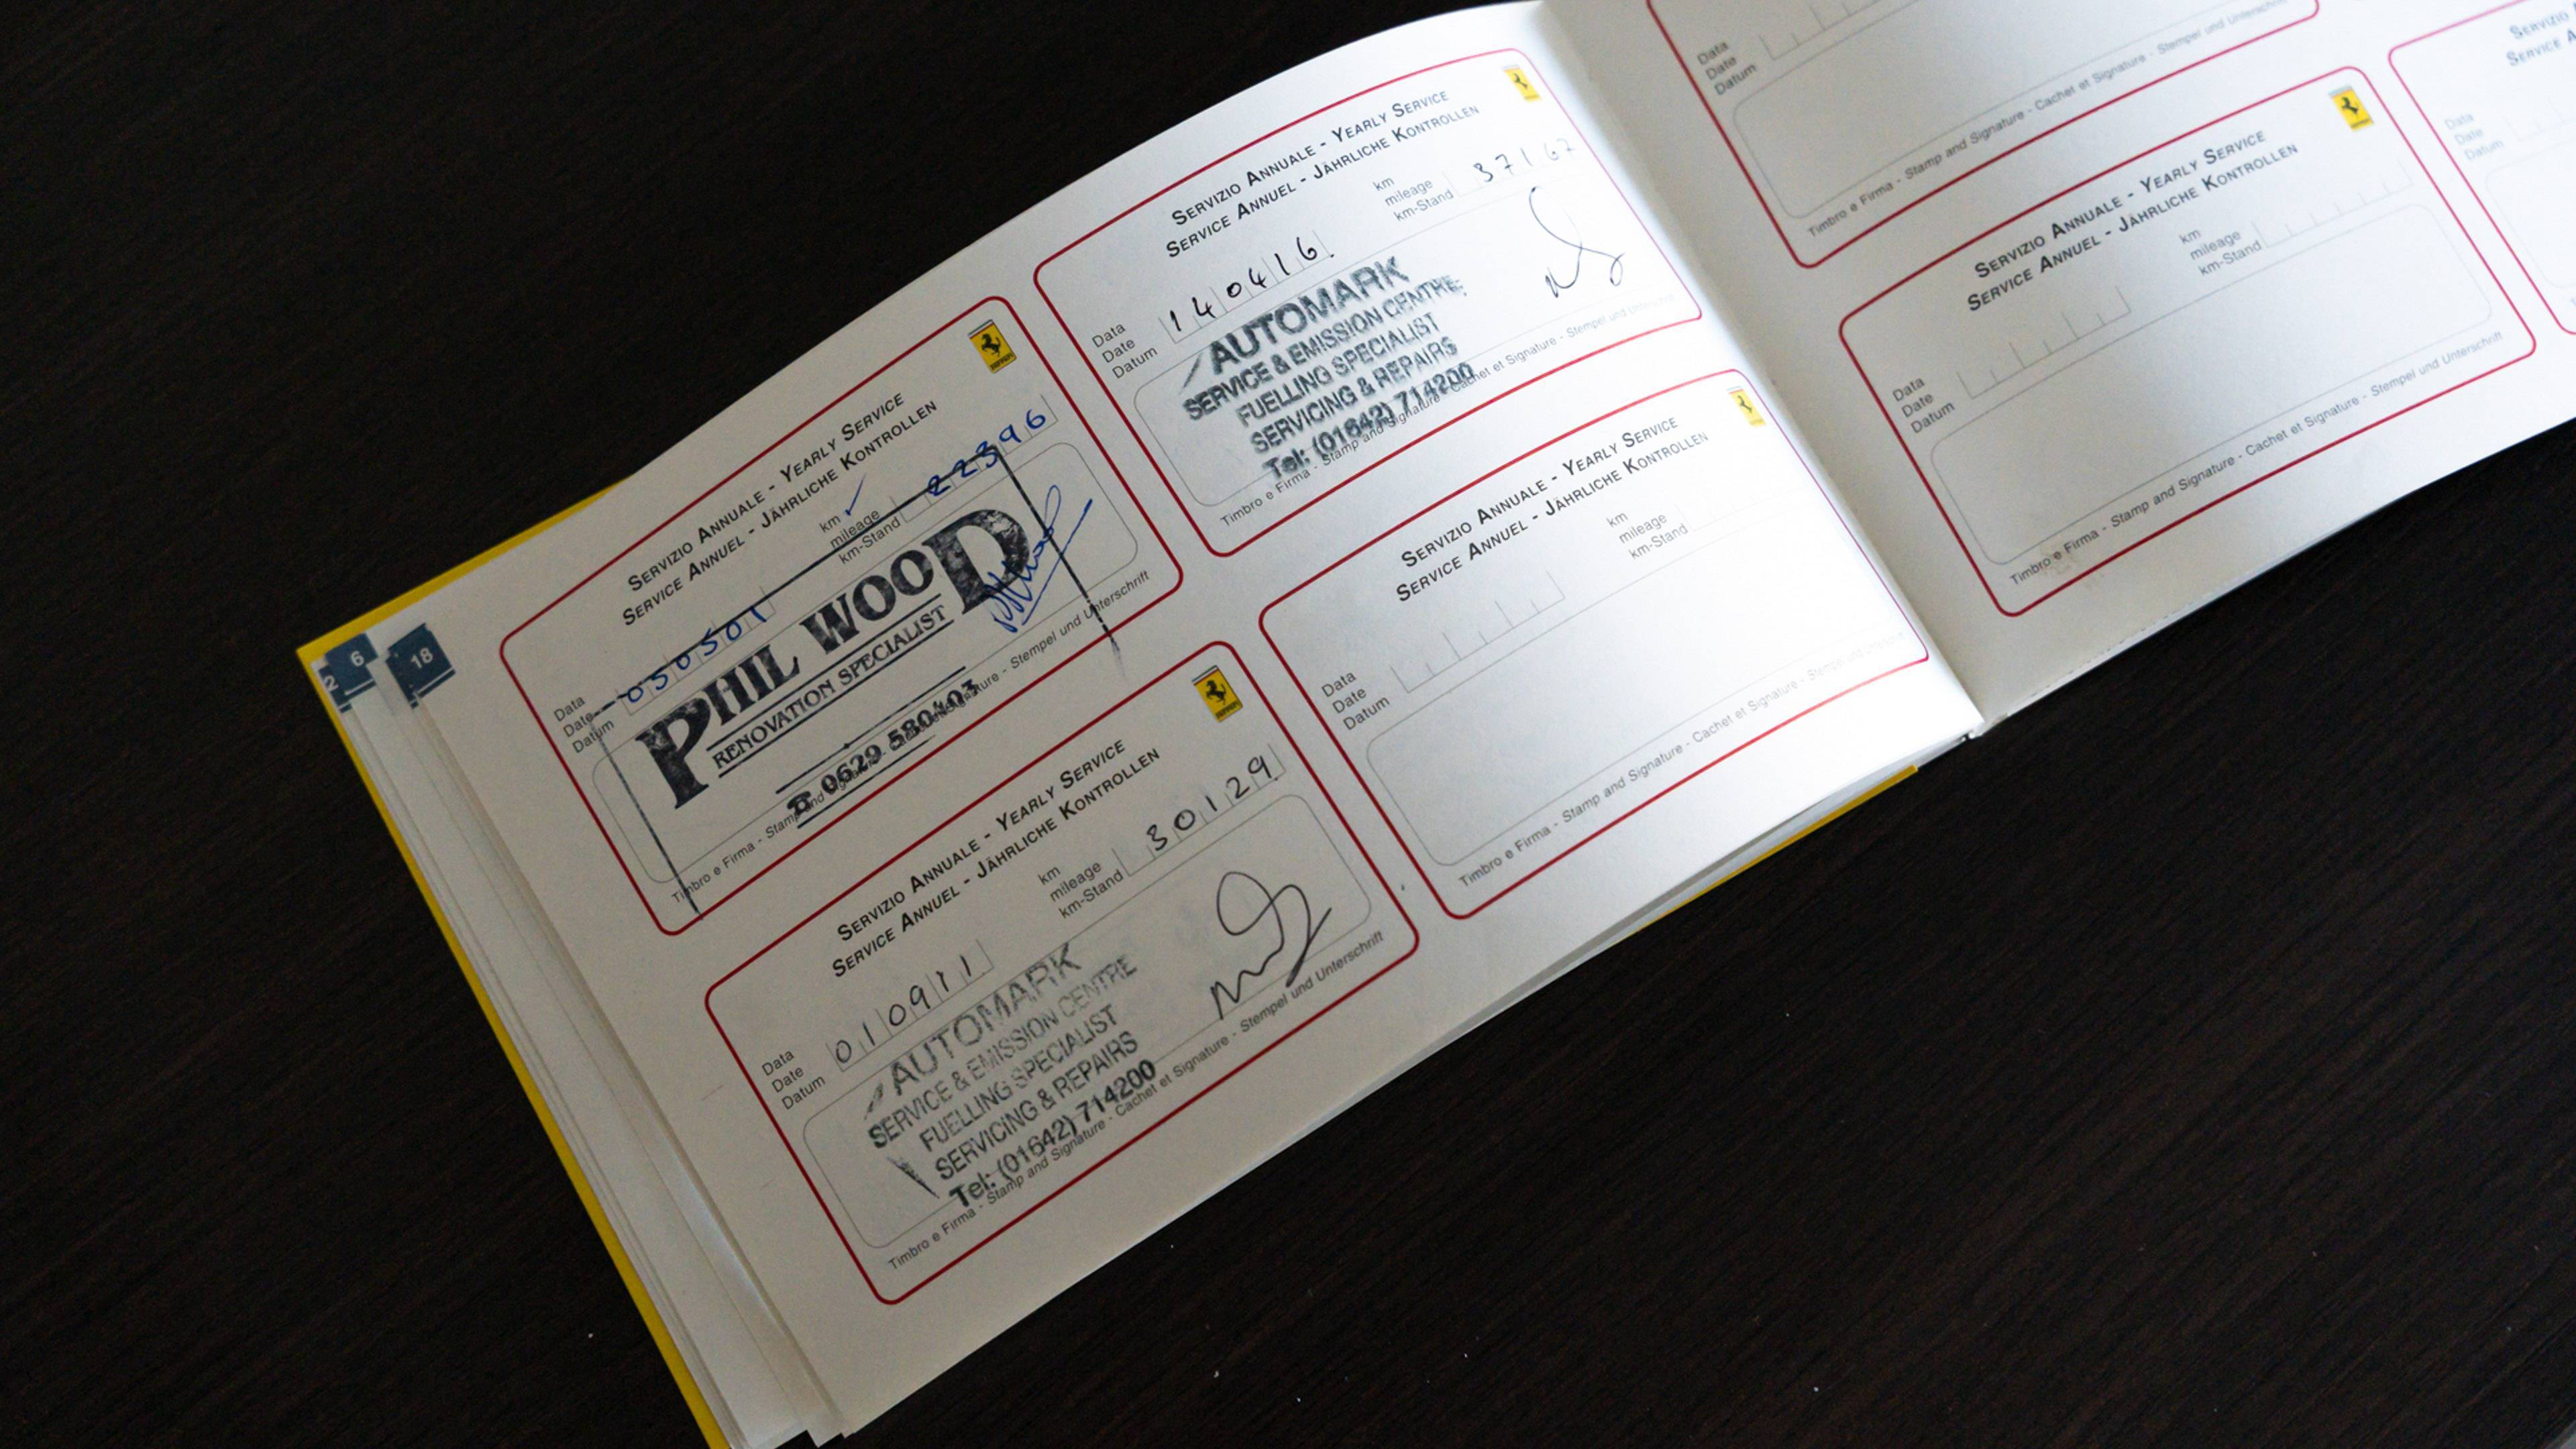 2
6
18
SERVIZIO ANNUALE - YEARLY SERVICE
SERVICE ANNUEL - JÄHRLICHE KONTROLLEN
Data
Date
Datum
050501
km
mileage
km-Stand
22396
PHIL WOOD
RENOVATION SPECIALIST
☎ 0629 580403
Timbro e Firma - Stamp and Signature - Stempel und Unterschrift
SERVIZIO ANNUALE - YEARLY SERVICE
SERVICE ANNUEL - JÄHRLICHE KONTROLLEN
Data
Date
Datum
010911
km
mileage
km-Stand
30129
AUTOMARK
SERVICE & EMISSION CENTRE
FUELLING SPECIALIST
SERVICING & REPAIRS
Tel: (01642) 714200
Timbro e Firma - Stamp and Signature - Cachet et Signature - Stempel und Unterschrift
SERVIZIO ANNUALE - YEARLY SERVICE
SERVICE ANNUEL - JÄHRLICHE KONTROLLEN
Data
Date
Datum
140416
km
mileage
km-Stand
37167
AUTOMARK
SERVICE & EMISSION CENTRE
FUELLING SPECIALIST
SERVICING & REPAIRS
Tel: (01642) 714200
Timbro e Firma - Stamp and Signature - Cachet et Signature - Stempel und Unterschrift
SERVIZIO ANNUALE - YEARLY SERVICE
SERVICE ANNUEL - JÄHRLICHE KONTROLLEN
Data
Date
Datum
km
mileage
km-Stand
Timbro e Firma - Stamp and Signature - Cachet et Signature - Stempel und Unterschrift
Data
Date
Datum
Timbro e Firma - Stamp and Signature - Cachet et Signature - Stempel und Unterschrift
SERVIZIO ANNUALE - YEARLY SERVICE
SERVICE ANNUEL - JÄHRLICHE KONTROLLEN
Data
Date
Datum
km
mileage
km-Stand
Timbro e Firma - Stamp and Signature - Cachet et Signature - Stempel und Unterschrift
SERVIZIO
SERVICE
Data
Date
Datum